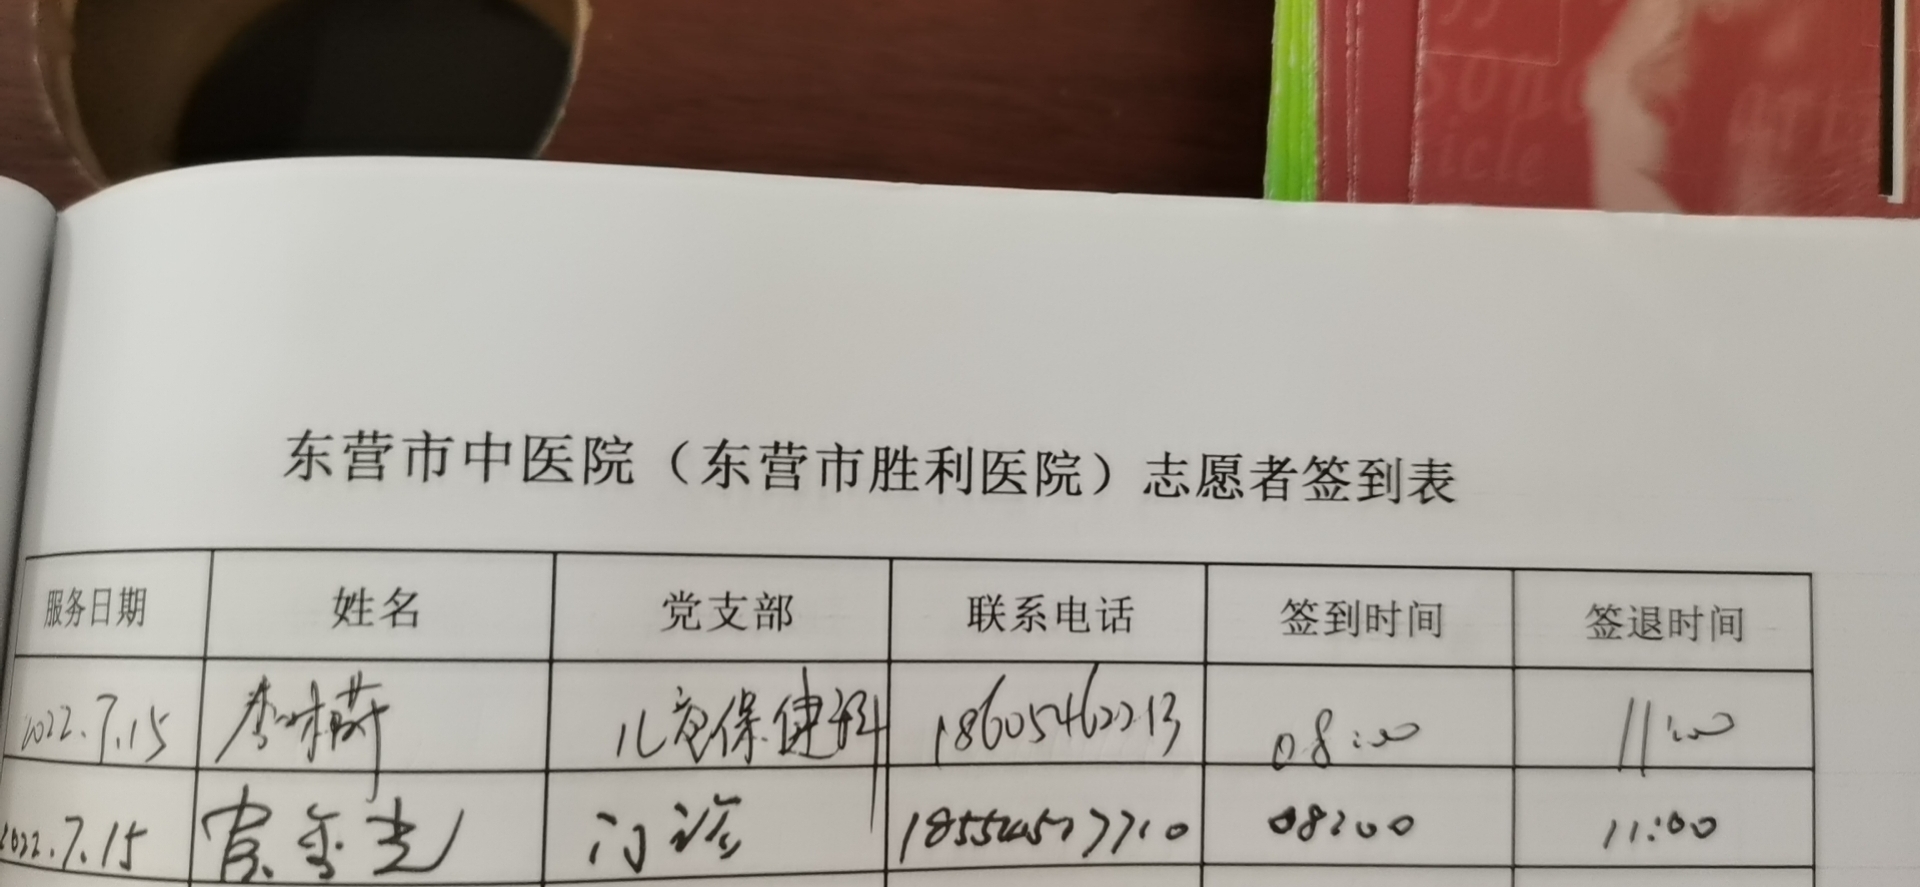 song
icle
东营市中医院（东营市胜利医院）志愿者签到表
服务日期 姓名 党支部 联系电话 签到时间 签退时间
2022.7.15 李 儿童保健科 18605462213 08:00 11:00
2022.7.15 门诊 08:00 11:00